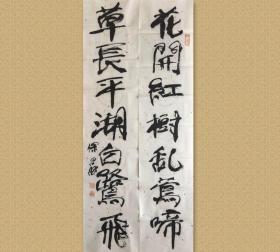 花開紅樹乱鶯啼
草長平湖白鷺飛